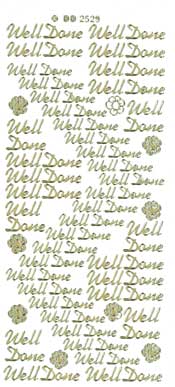 2529
Well Done Well Done
Well Done Well Done
Well Done Well Done
Well Done Well Done
Well Done
Well Done Well
Well Well Done Done
Done Well Done
Well Done Well Done
Well Done Well Done
Well Done Well Done
Well Done Well Done
Well Well Done
Done Well Done
Well Done Well
Well Done Done
Well Done Well Done
Well Done Well Done
Well Done Well Done
Well Done
Well Done Well
Well Well Done Done
Done Well Done
Well Done Well Done
Well Done Well Done